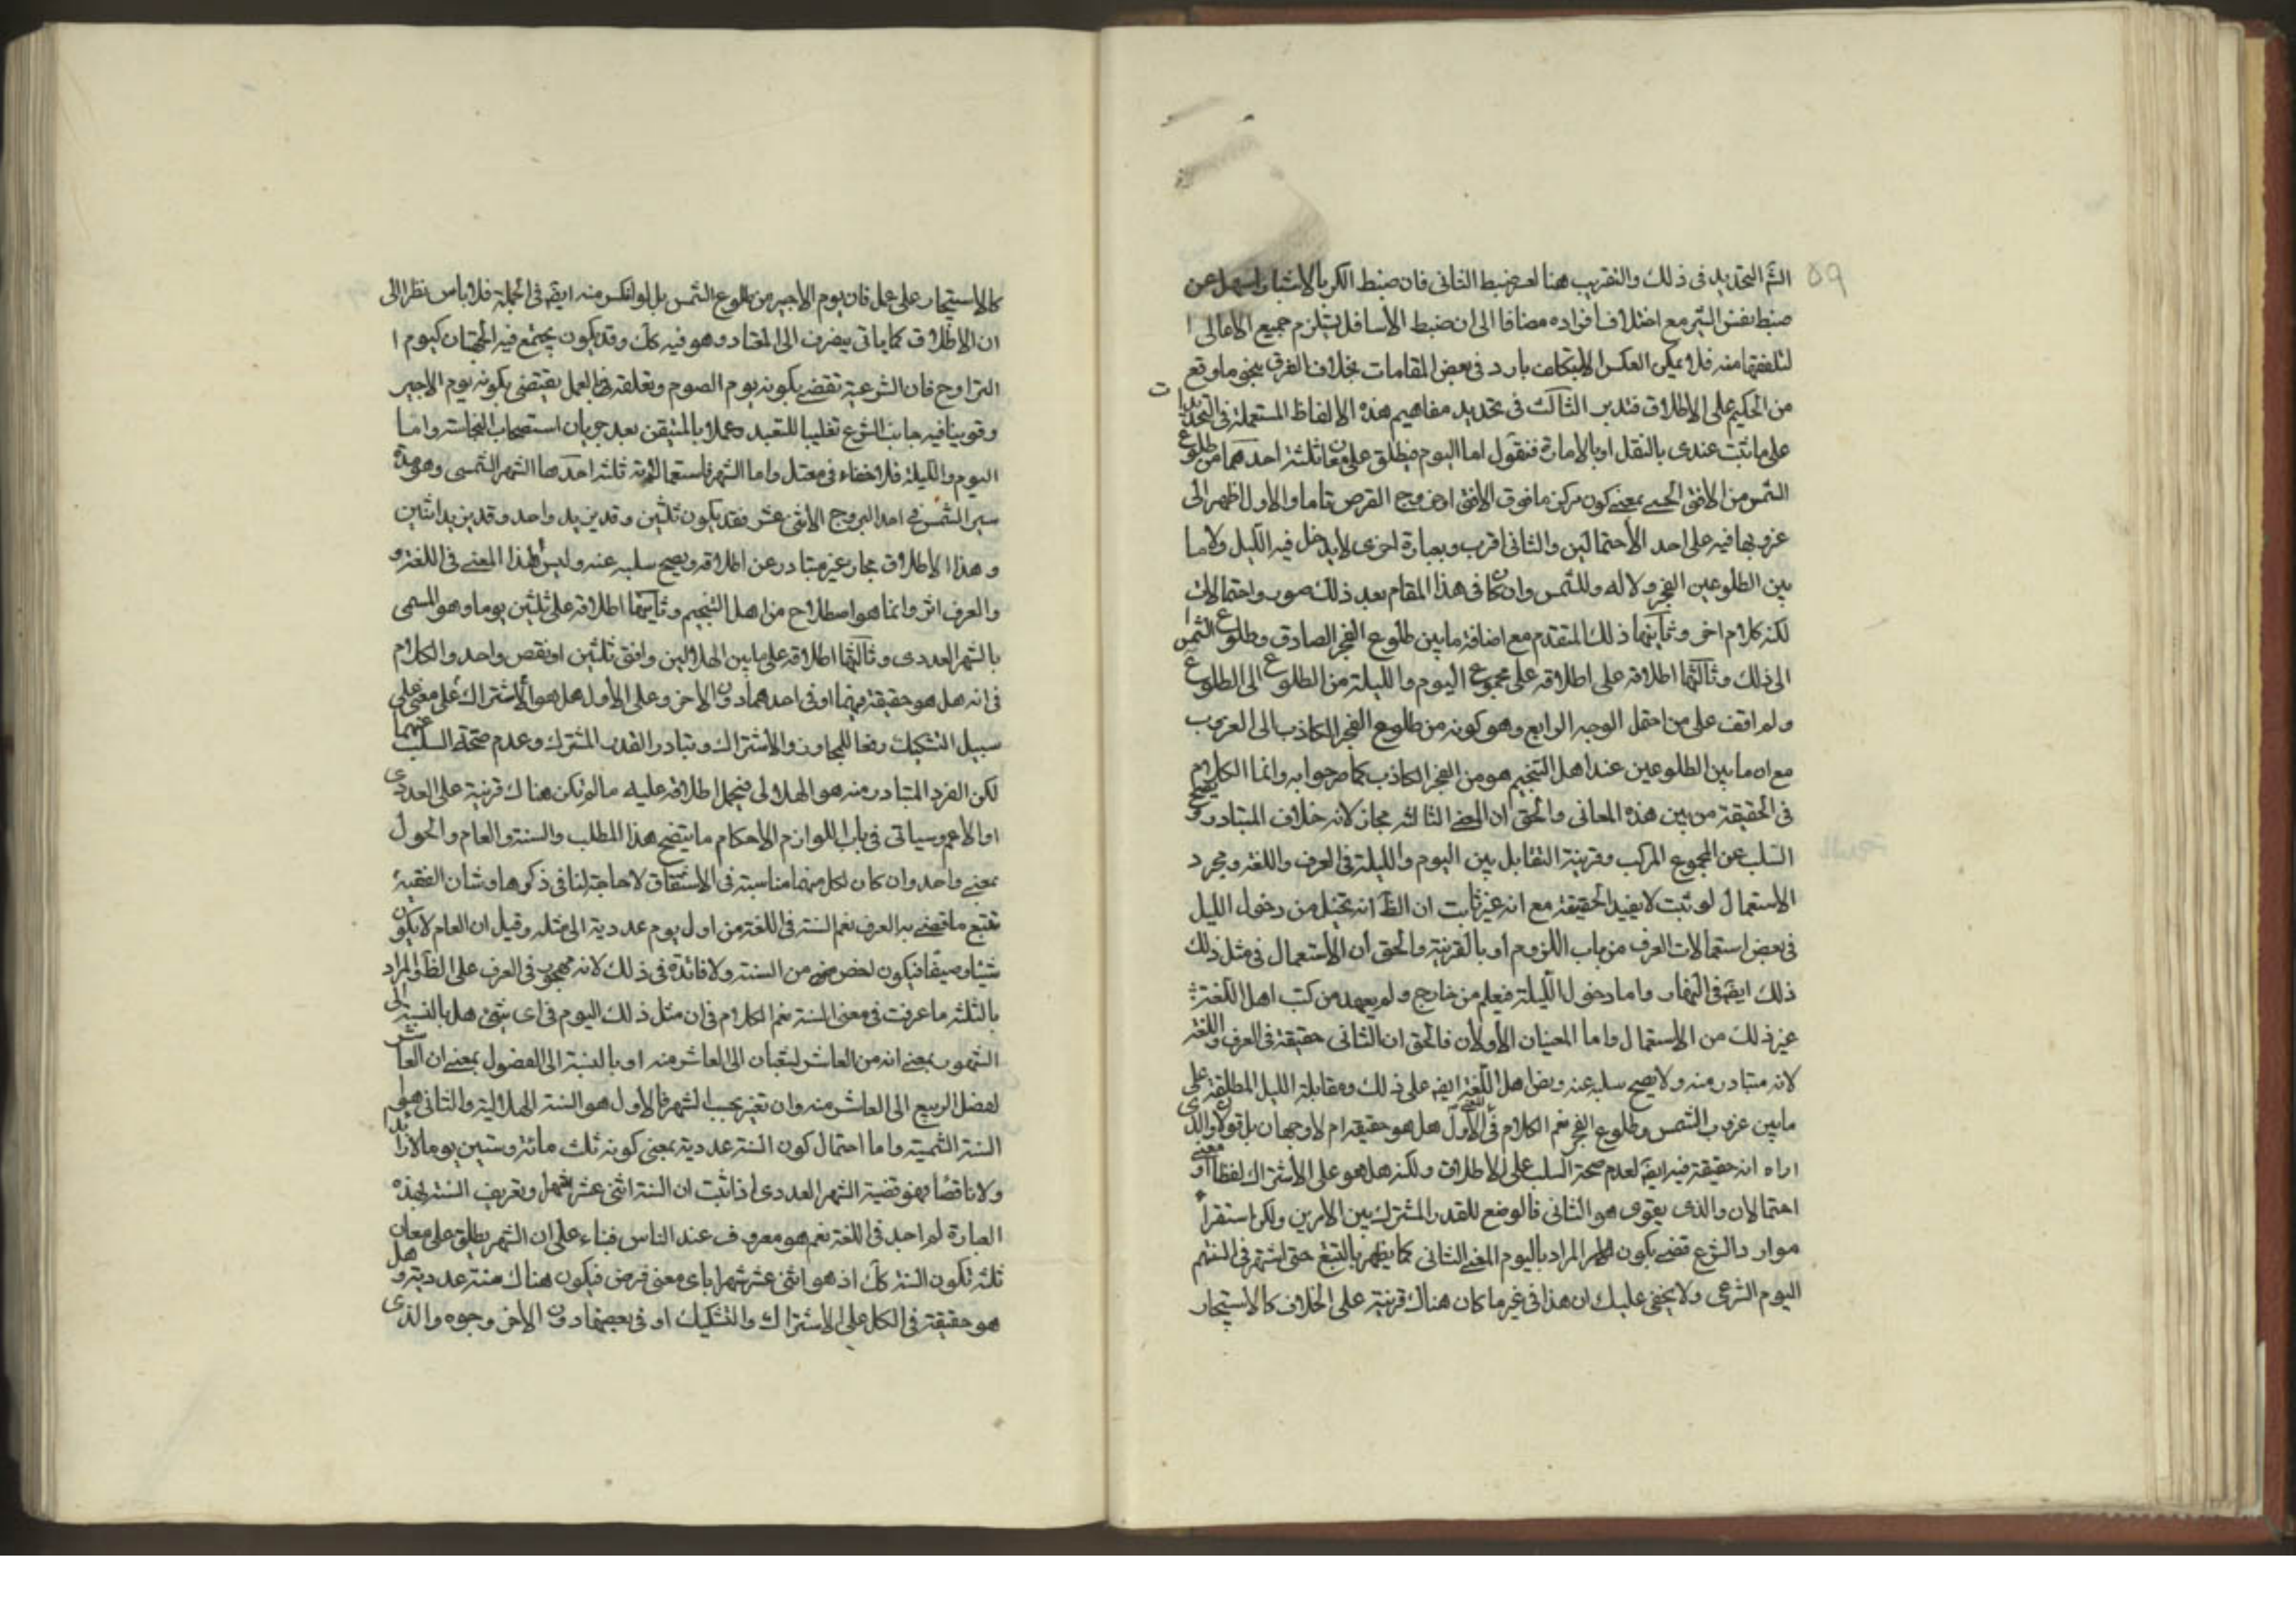 ٥٩
الشر التحديد في ذلك والتقريب هنا لعسر ضبط الثاني فان ضبط الكر بالاشبار اسهل من
ضبط نفس البئر مع اختلاف افراده مضافا الى ان ضبط الاسافل يستلزم جميع الاعالى
لتلفقها منه فلا يمكن العكس الا بتكلف بارد في بعض المقامات بخلاف الفرق بنحو ما وقع
من الحكيم على الاطلاق فتدبر الثالث في تحديد مفاهيم هذه الالفاظ المستعملة في التحديدات
على ما ثبت عندى بالنقل او بالامارة فنقول اما اليوم فيطلق على معان ثلثة احدهما من طلوع
الشمس من الافق الحسى بمعنى كون مركزه ما فوق الافق او خروج القرص تاما والاول اظهر الى
غروبها فيه على احد الاحتمالين والثانى اقرب وبعبارة اخرى لا يدخل فيه الليل ولا ما
بين الطلوعين الفجر ولاله وللشمس وان كان في هذا المقام بعد ذلك صور واحتمالات
لكنه كلام اخر وثانيهما ذلك المتقدم مع اضافة ما بين طلوع الفجر الصادق وطلوع الشمس
الى ذلك وثالثها اطلاقه على اطلاقه على مجموع اليوم والليلة من الطلوع الى الطلوع
ولم اقف على من احتمل الوجه الرابع وهو كونه من طلوع الفجر الكاذب الى الغروب
مع ان ما بين الطلوعين عند اهل التنجيم هو من الفجر الكاذب كما صرحوا به وانما الكلام
في الحقيقة من بين هذه المعانى والحق ان المعنى الثالث مجاز لانه خلاف المتبادر ويصح
السلب عن المجموع المركب وقرينة التقابل بين اليوم والليلة في العرف واللغة ومجرد
الاستعمال لو ثبت لا يفيد الحقيقة مع انه غير ثابت ان الظ انه تخيل من دخول الليل
في بعض استعمالات العرف من باب اللزوم او بالقرينة والحق ان الاستعمال في مثل ذلك
ذلك ايضا في النهار واما دخول الليلة فيعلم من خارج ولم يعهد من كتب اهل اللغة
غير ذلك من الاستعمال واما المعنيان الاولان فالحق ان الثانى حقيقة في العرف واللغة
لانه متبادر منه ولا يصح سلبه عنه ونص اهل اللغة ايضا على ذلك ومقابلة الليل المطلقة على
ما بين غروب الشمس وطلوع الفجر نعم الكلام في المعنى الاول هل هو حقيقة ام لا وجهان بل قولان والذى
اراه انه حقيقة فيه ايضا لعدم صحة السلب على الاطلاق ولكنه هل هو على الاشتراك لفظا او معنى
احتمالان والذى يقوى هو الثانى فالوضع للقدر المشترك بين الامرين ولكن استقراء
موارد الشرع قضى بكون المراد باليوم المعنى الثانى كما يظهر بالتتبع حتى اشتهر في السنتهم
اليوم الشرعى ولا يخفى عليك ان هذا في غير ما كان هناك قرينة على الخلاف كالاستيجار
كالاستيجار على عمل فان يوم الاجير من طلوع الشمس بل لو انكس منه ايضا في الجملة فلا باس نظرا الى
ان الاطلاق كما ياتى ينصرف الى المعتاد وهو فيه كك وقد يكون يجتمع فيه الجهتان كيوم
التراوح فان الشرعية تقضى بكونه يوم الصوم وتعلقه بالعمل يقتضى بكونه يوم الاجير
وقوينا فيه جانب الشرع تغليبا للتعبد وعملا بالمتيقن بعد جريان استصحاب النجاسة واما
اليوم والليلة فلا خفاء في معتدل واما الشهر فاستعمالاته ثلثة احدها الشهر الشمسى وهو مدة
سير الشمس في احد البروج الاثنى عشر فقد يكون ثلثين وقد يزيد واحد وقد يزيد اثنين
وهذا الاطلاق مجاز غير متبادر عن اطلاقه ويصح سلبه عنه وليس لهذا المعنى في اللغة و
والعرف اثر وانما هو اصطلاح من اهل التنجيم وثانيها اطلاقه على ثلثين يوما وهو المسمى
بالشهر العددى وثالثها اطلاقه على ما بين الهلالين وافق ثلثين او نقص واحد والكلام
في انه هل هو حقيقة فيهما او في احدهما دون الاخر وعلى الاول هل هو الاشتراك على معنى على
سبيل التشكيك دفعا للمجاز والاشتراك وتبادر القدر المشترك وعدم صحة السلب عنهما
لكن الفرد المتبادر منه هو الهلالى فيحمل اطلاقه عليه ما لم تكن هناك قرينة على العددى
او الاعم وسياتى في باب اللوازم الاحكام ما يتضح هذا المطلب والسنة والعام والحول
بمعنى واحد وان كان لكل منهما مناسبة في الاشتقاق لا حاجة لنا في ذكرها وشان الفقيه
تتبع ما قضى به العرف نعم السنة في اللغة من اول يوم عددية الى مثله وقيل ان العام لا يكون
شتاء وصيفا فيكون اخص من السنة ولا فائدة في ذلك لانه مهجور في العرف على الظ والمراد
بالثلثة ما عرفت في معنى السنة نعم الكلام في ان مثل ذلك اليوم في اى شئ هل بالنسبة الى
الشهور بمعنى انه من العاشر لشعبان الى العاشر منه او بالنسبة الى الفصول بمعنى ان العاشر
لفصل الربيع الى العاشر منه وان تغير بحسب الشهر فالاول هو السنة الهلالية والثانى هى
السنة الشمسية واما احتمال كون السنة عددية بمعنى كونه ثلث مائة وستين يوما لا زائدا
ولا ناقصا فهو قضية الشهر العددى اذا ثبت ان السنة اثنى عشر شهرا وتعريف السنة بهذه
العبارة لم اجد في اللغة نعم هو معروف عند الناس فبناء على ان الشهر يطلق على معان
ثلثة تكون السنة كك اذ هو اثنى عشر شهرا باى معنى فرض فيكون هناك سنة عددية وهل
هو حقيقة في الكل على الاشتراك والتشكيك او في بعضها دون الاخر وجوه والذى